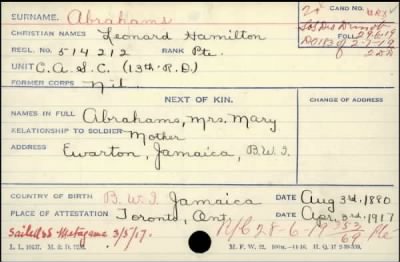 SURNAME. Abrahams
CHRISTIAN NAMES Leonard Hamilton
REGL. NO. 514212 RANK Pte.
UNIT C.A.S.C. (13th R.D)
FORMER CORPS Nil
FOLL.
29-6-19
NEXT OF KIN.
CHANGE OF ADDRESS
NAMES IN FULL Abrahams, Mrs. Mary
RELATIONSHIP TO SOLDIER Mother
ADDRESS Ewarton, Jamaica, B.W.I.
COUNTRY OF BIRTH B.W.I. Jamaica DATE Aug 3rd. 1880
PLACE OF ATTESTATION Toronto, Ont. DATE Apr. 3rd. 1917
Sailed SS Metagama 3/5/17. 28-6-19 Pte
M. F. W. 22.